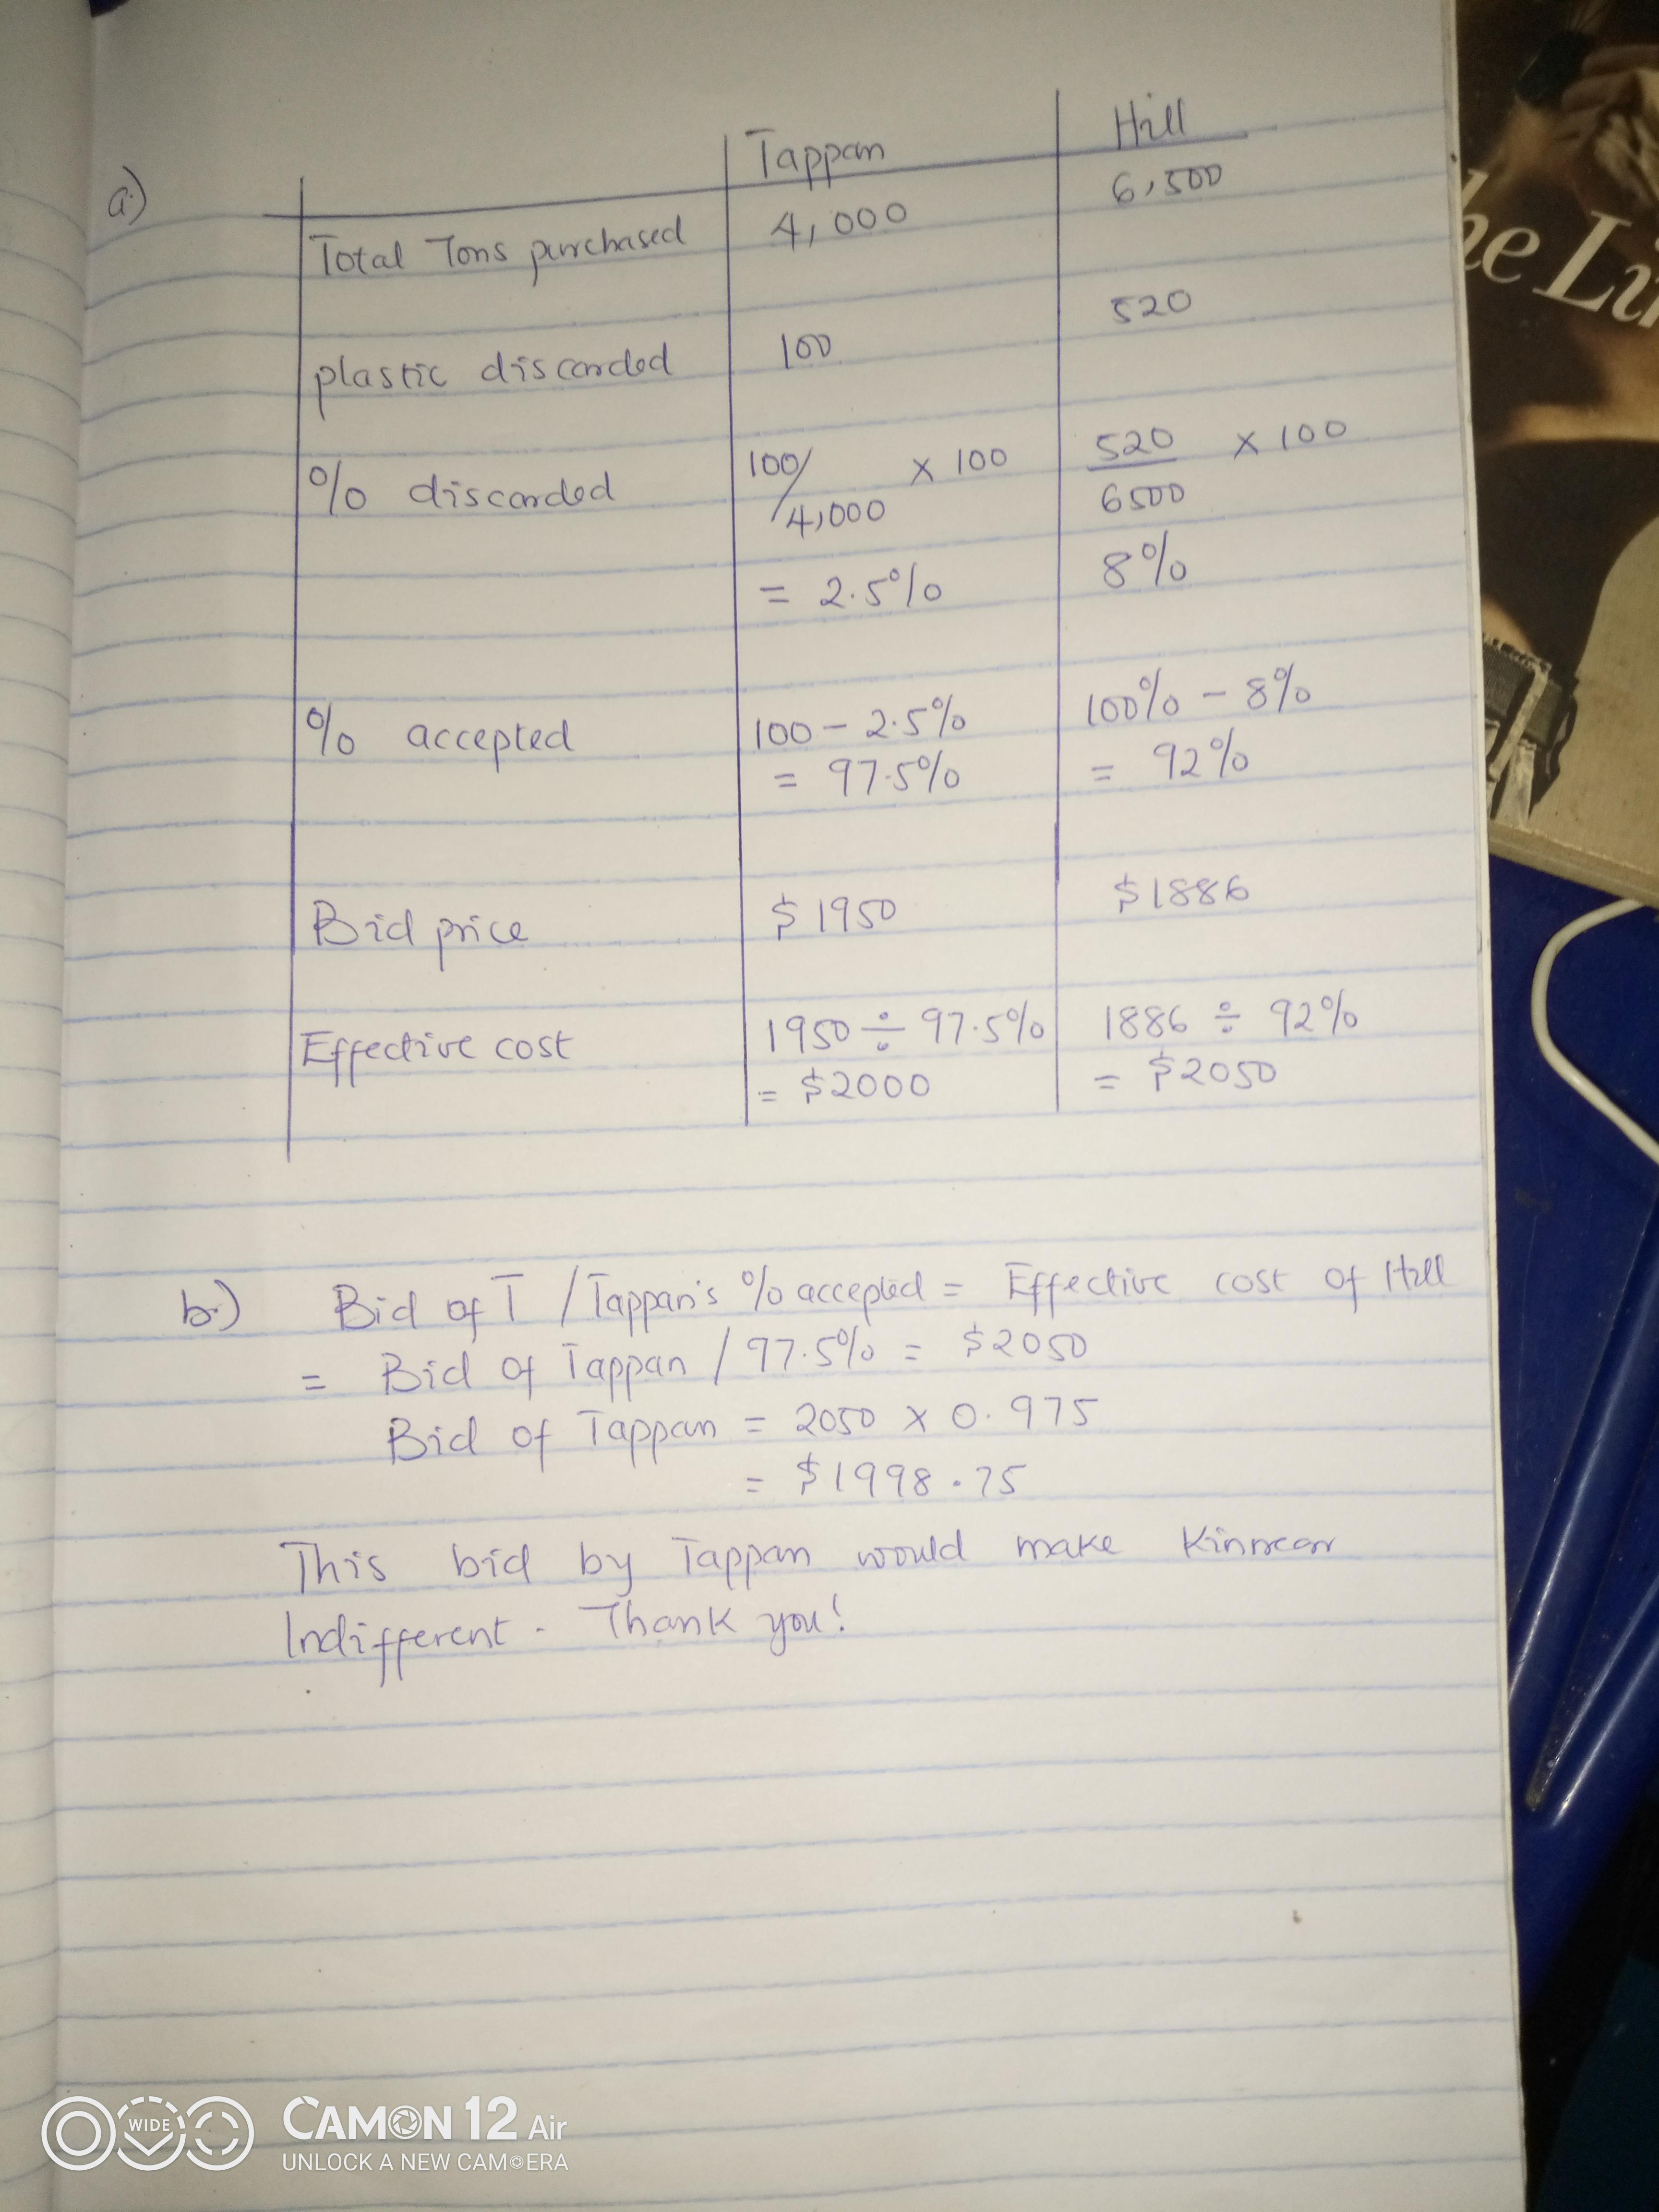 a.)
Tappan Hill
Total Tons purchased 4,000 6,500
plastic discarded 100 520
% discarded 100/4,000 x 100 520/6500 x 100
= 2.5% 8%
% accepted 100 - 2.5% 100% - 8%
= 97.5% = 92%
Bid price $1950 $1886
Effective cost 1950 ÷ 97.5% 1886 ÷ 92%
= $2000 = $2050
b.) Bid of T / Tappan's % accepted = Effective cost of Hill
= Bid of Tappan / 97.5% = $2050
Bid of Tappan = 2050 x 0.975
= $1998.75
This bid by Tappan would make Kinnear
Indifferent. Thank you!
he Li
WIDE
CAMON 12 Air
UNLOCK A NEW CAMERA